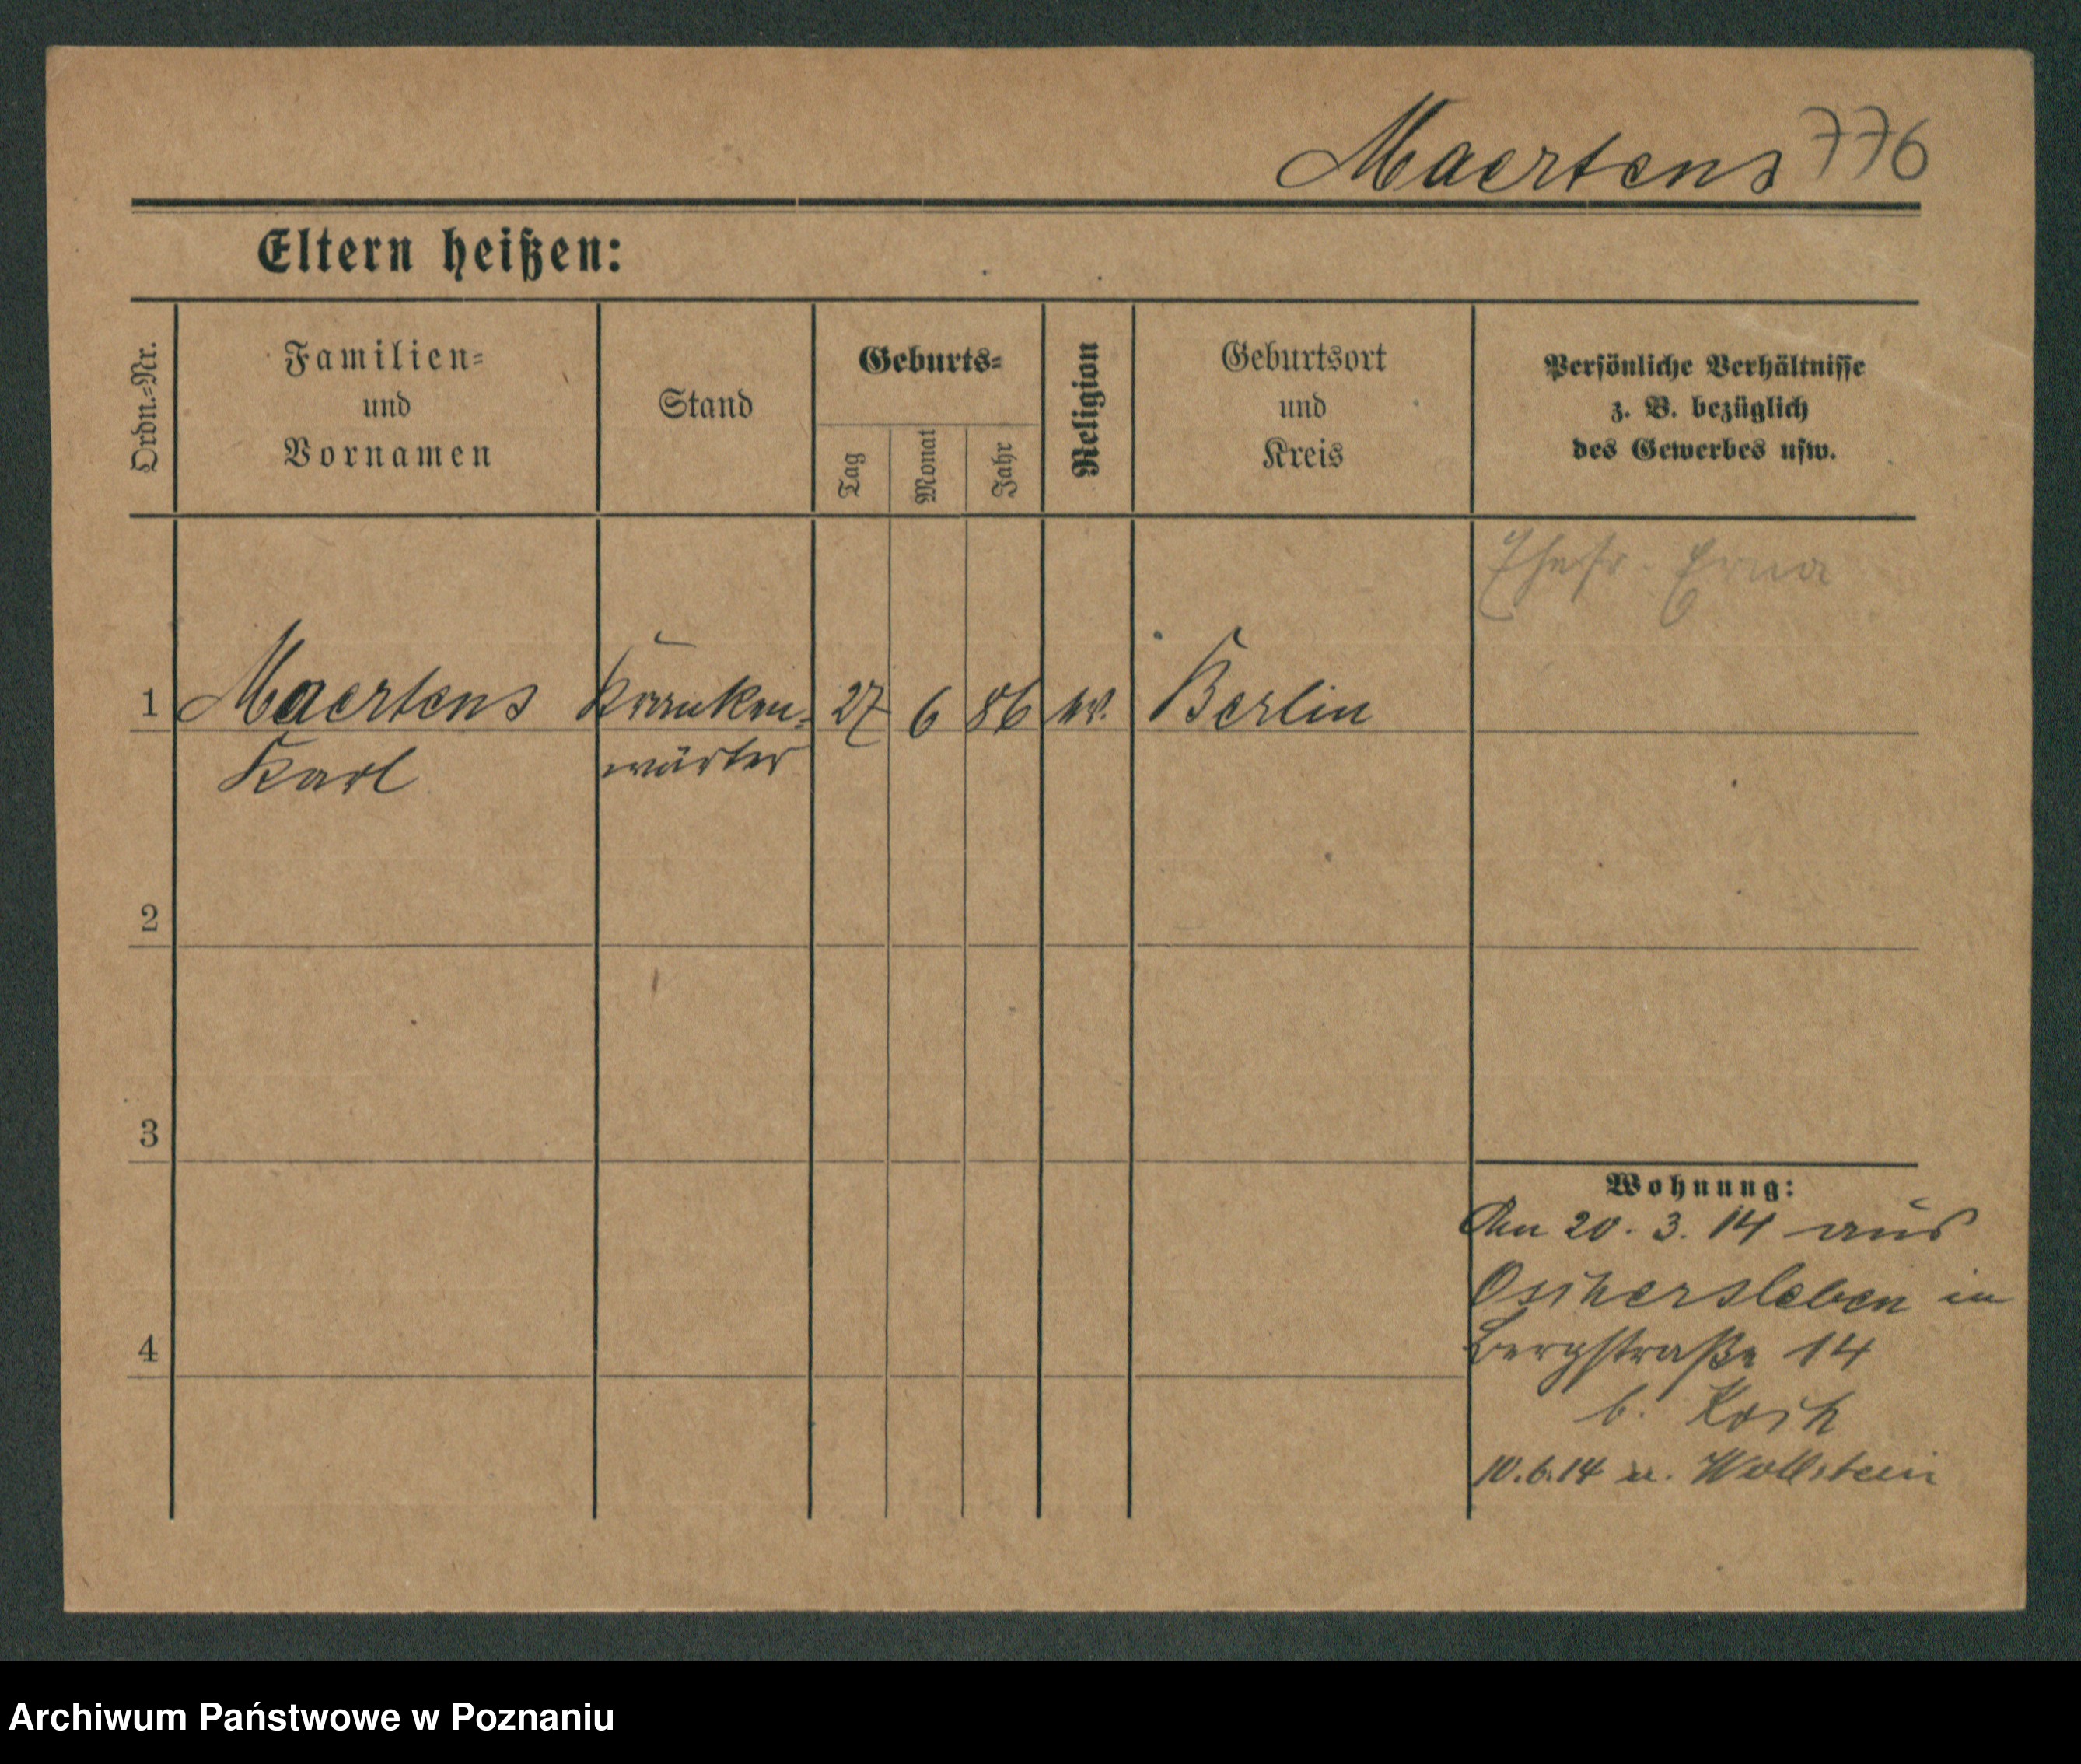 Maertens 776
Eltern heißen:
Ordn.=Nr.
Familien=
und
Vornamen
Stand
Geburts=
Tag
Monat
Jahr
Religion
Geburtsort
und
Kreis
Persönliche Verhältnisse
z. B. bezüglich
des Gewerbes usw.
Ehefr. Erna
1 Maertens Kranken= 27 6 86 ev. Berlin
Karl wärter
2
3
Wohnung:
An 20. 3. 14 aus
Oschersleben in
4 Bergstraße 14
b. Koch
10.6.14 n. Wollstein
Archiwum Państwowe w Poznaniu